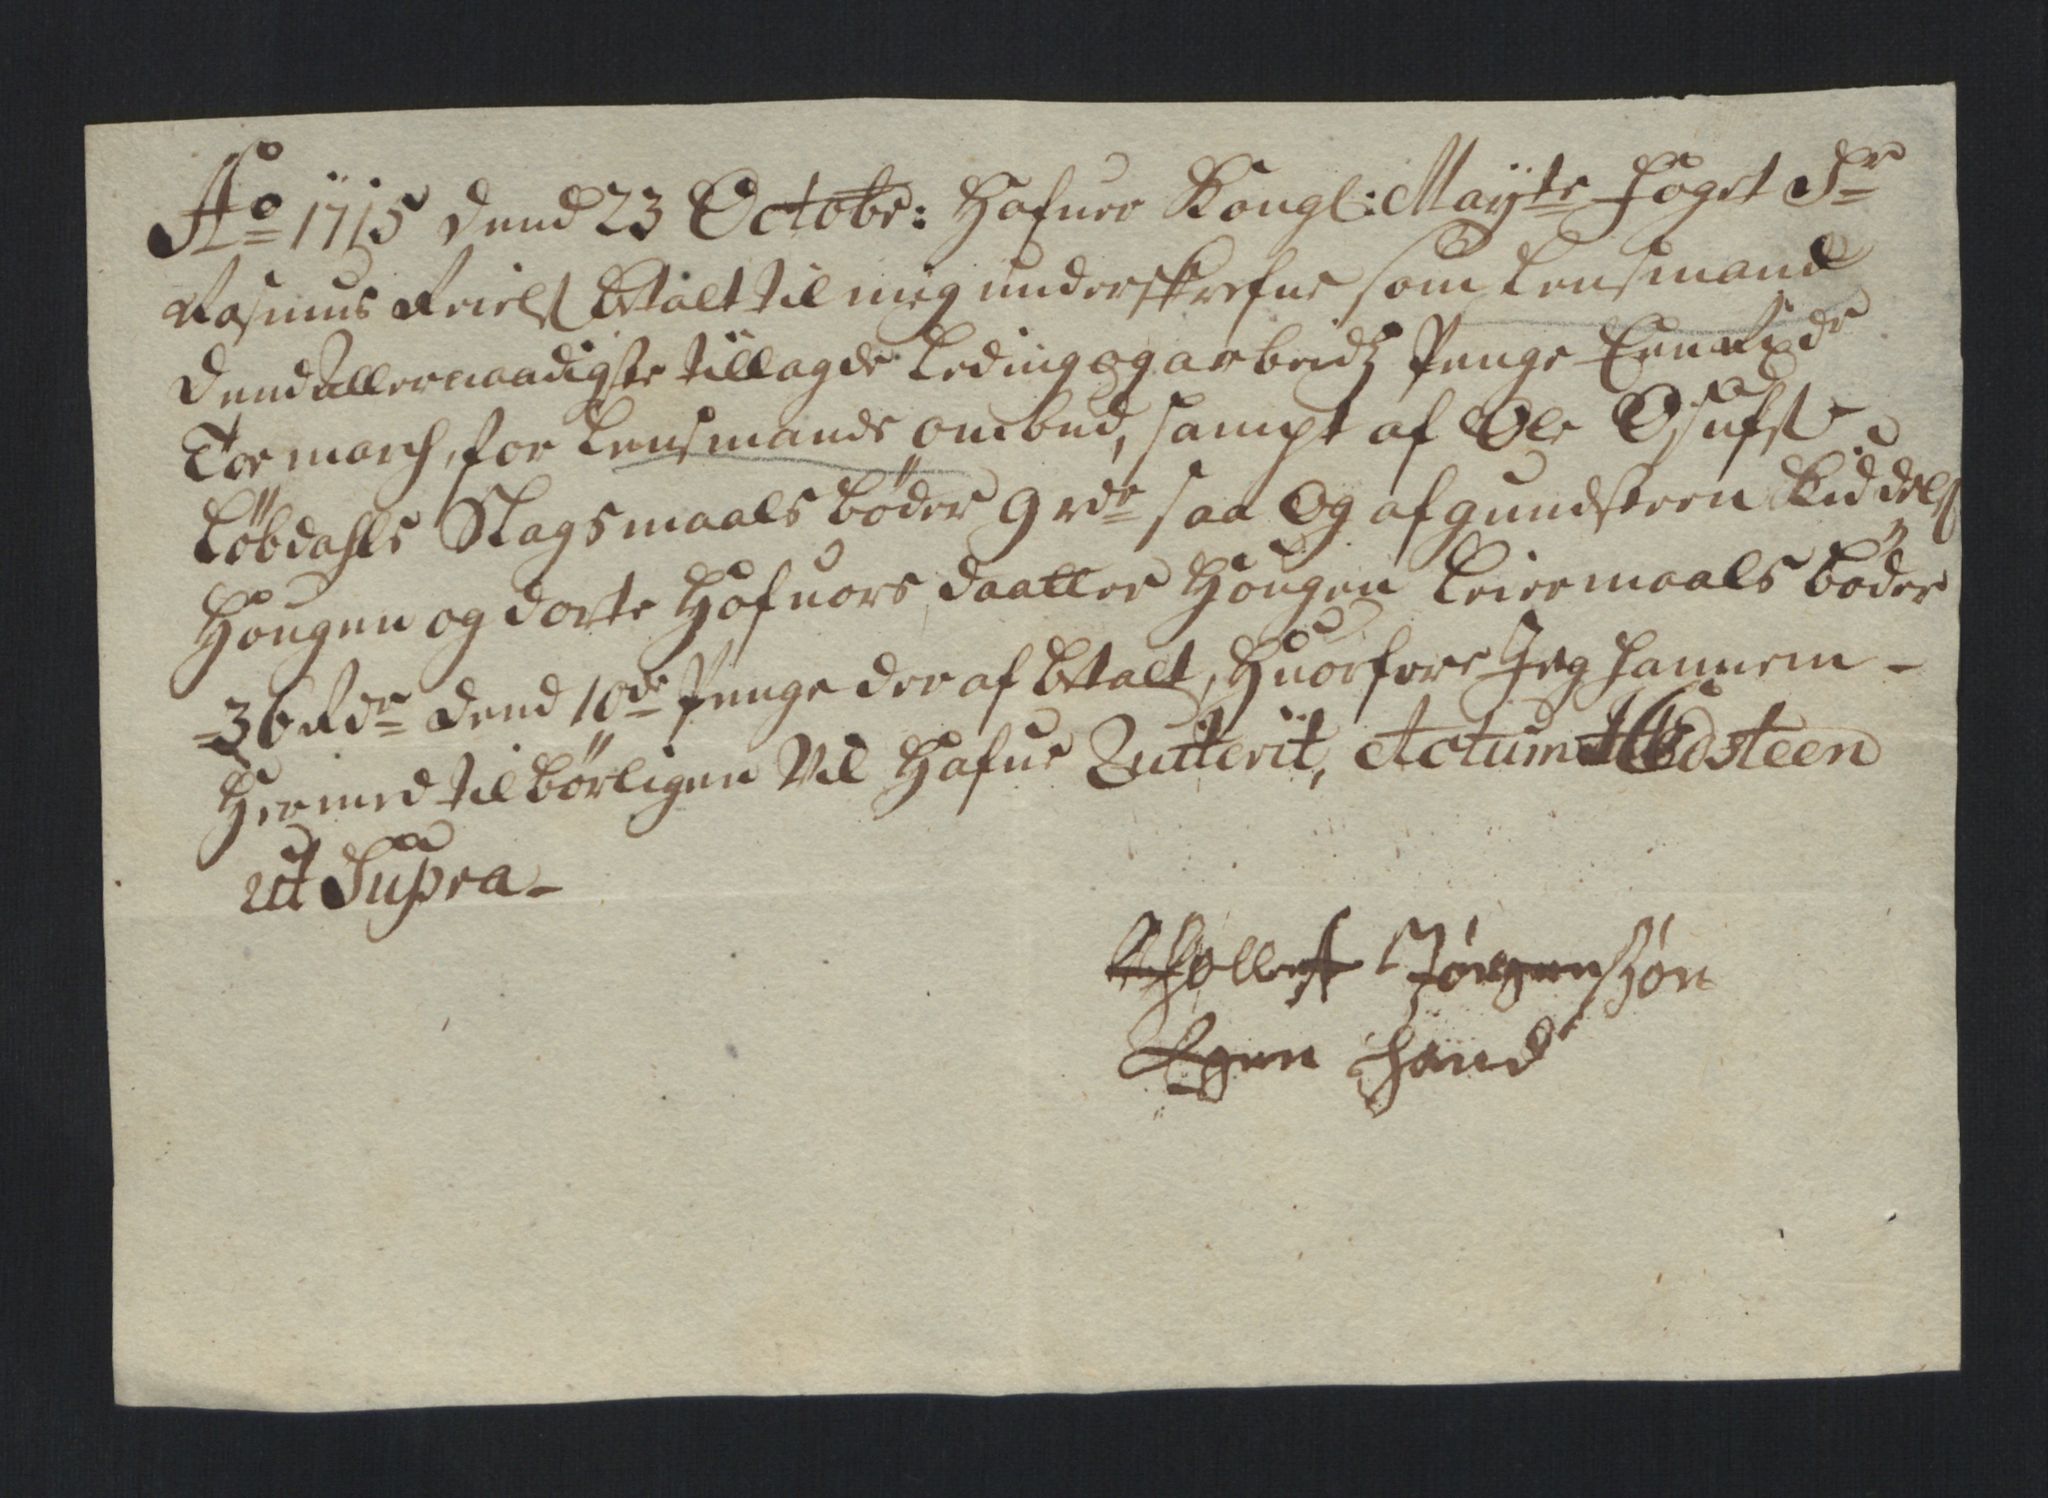 Ao 1715 Dend 23 Octobr: Hafuer Kongl: Mayts foget Sr
Rasmus Friels betalt til mig underskrefne som Lensmand
Dend allernaadigste tillagde Leding og arbeids Penge Een Rixdr
Tor march, for Lensmands ombud, sampt af Ole Osufs
Løbdahls Slagsmaals bøder 9 rdr saa Og af gundsteen Kiddels
Hougen og dorte Hafuors daatter Hougen Leiermaals bøder
36 Rdr dend 10de Penge der af betalt, Huorfore Jeg hannem -
Hermed tilbørligen Vil Hafue Quiterit, Actum Edsteen
ut Supra -
Tollef Jørgenszøn
Egen hand